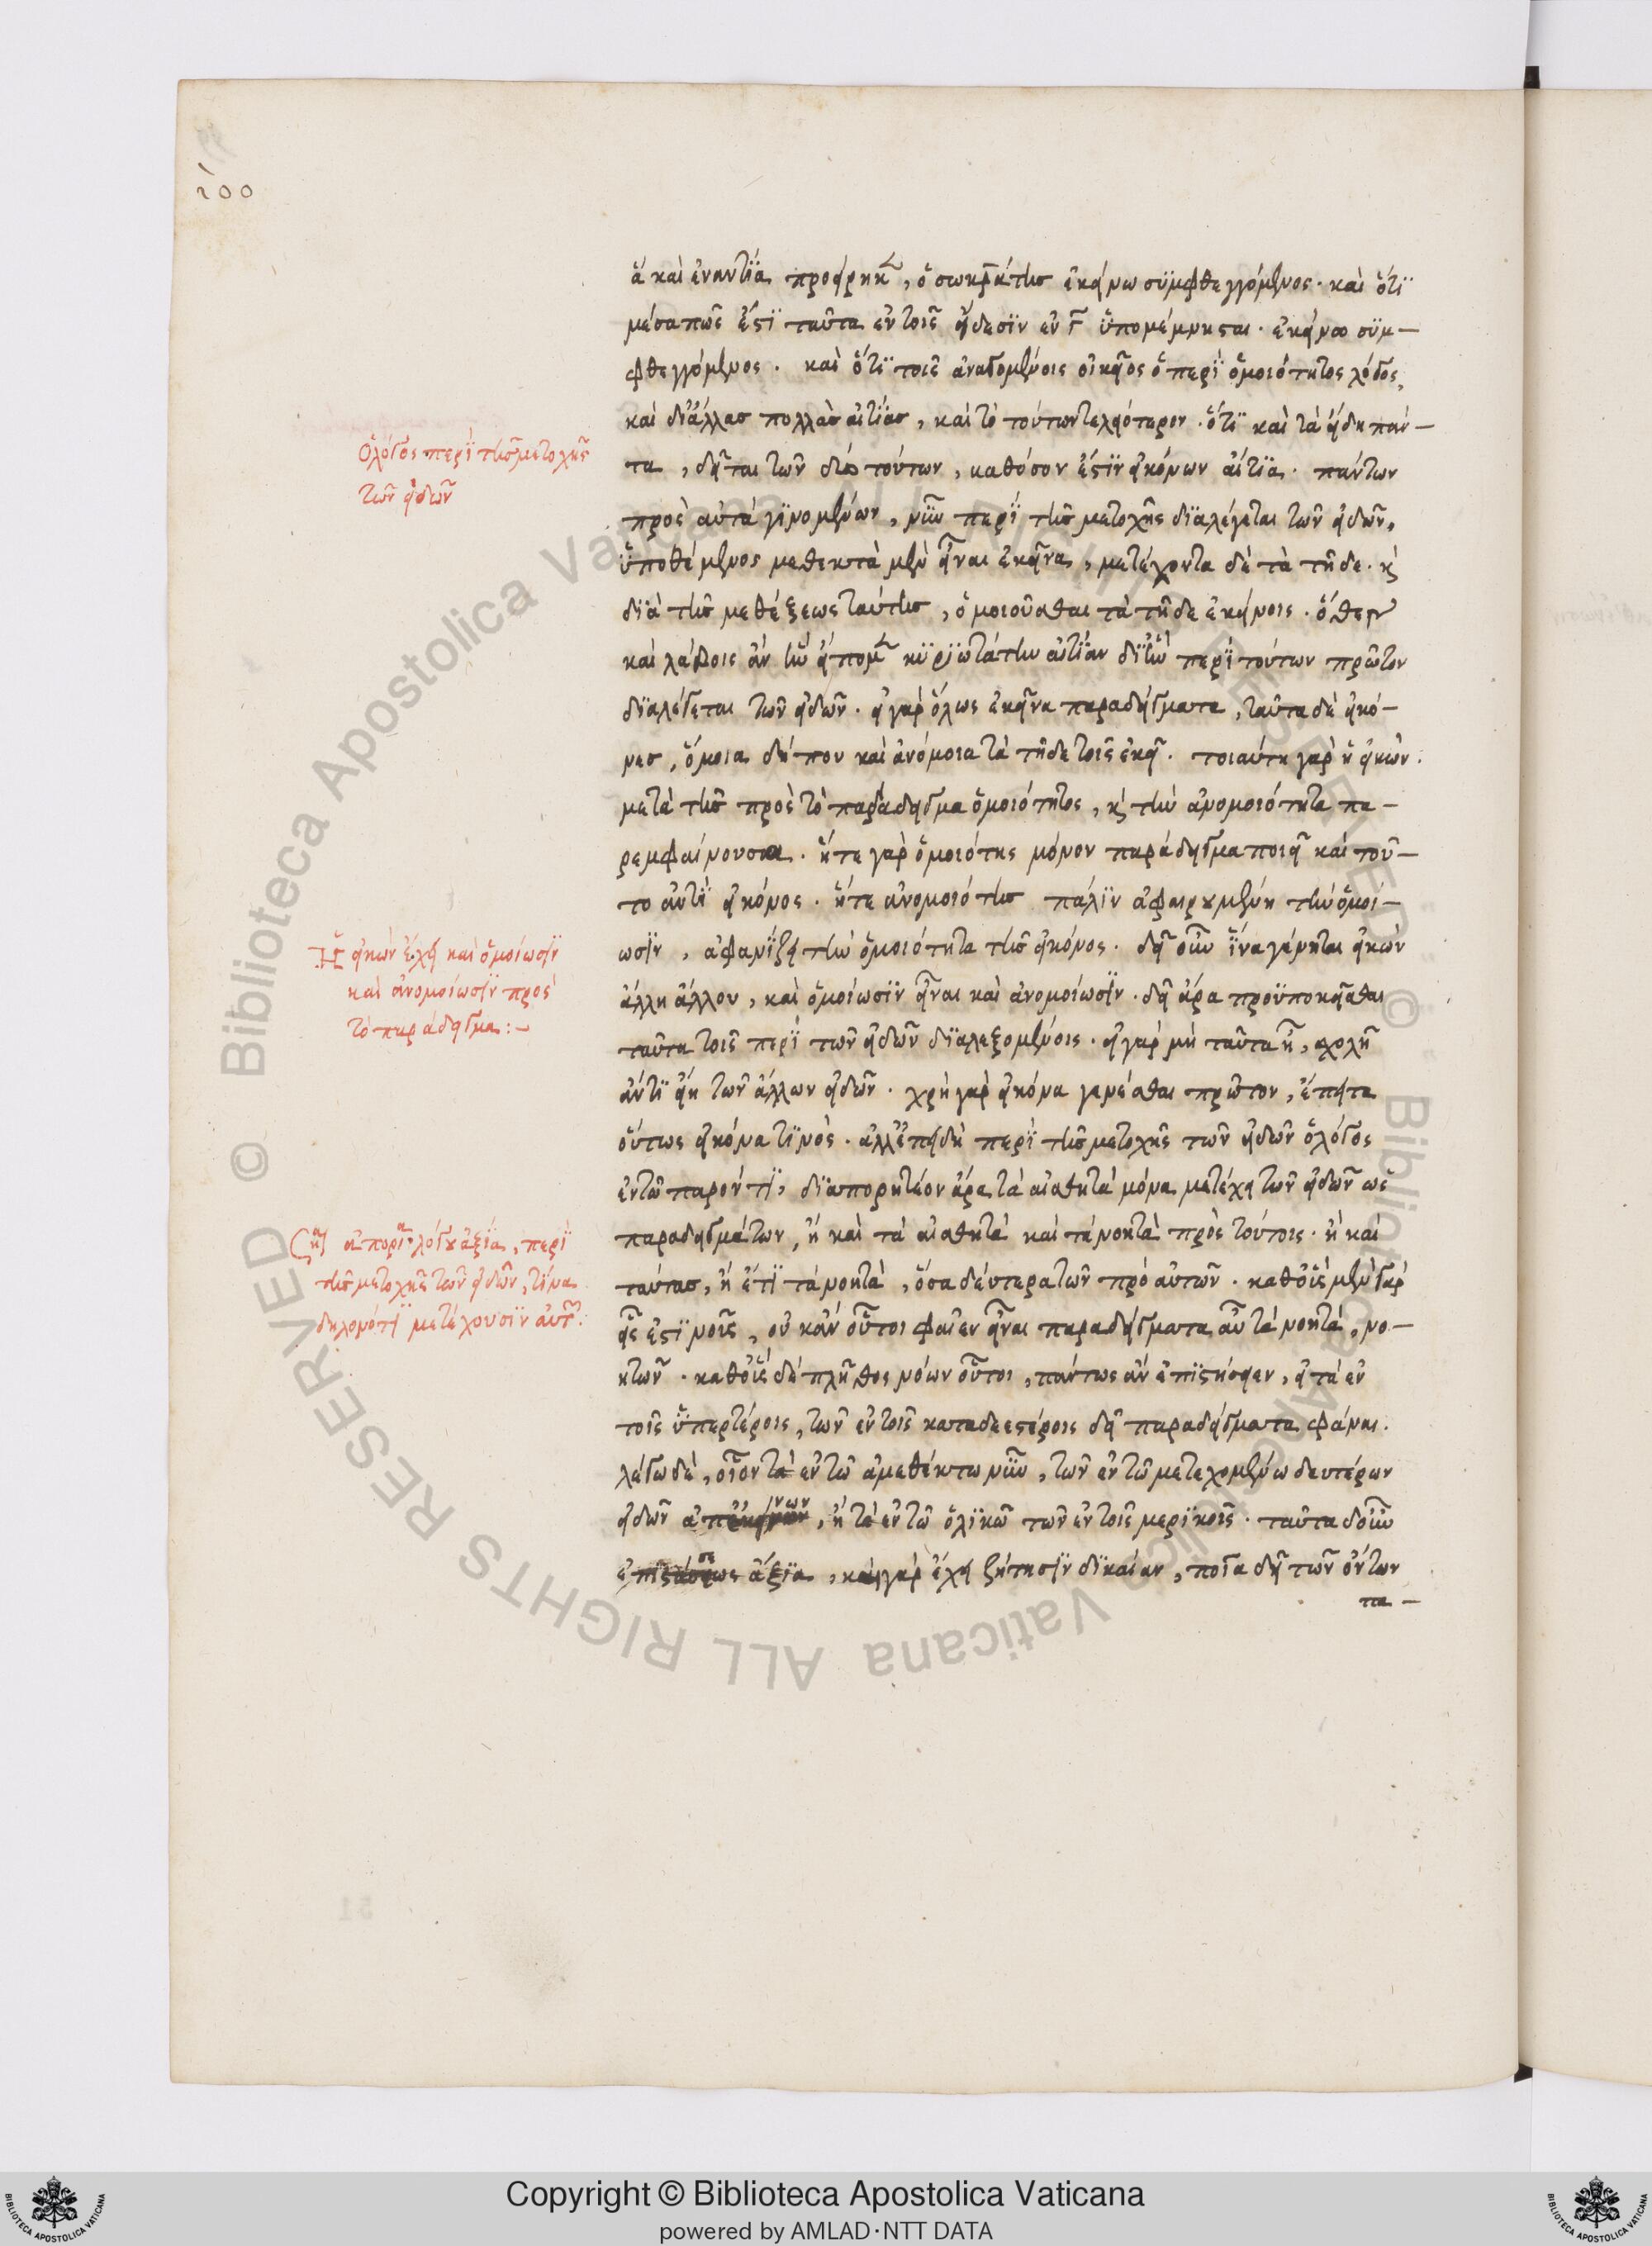 200
ἃ καὶ ἐναντία προείρηκεν, ὁ σωκράτης ἐκείνω συμφθεγγόμενος. καὶ ὅτι
μέσα πως ἐστὶ ταῦτα ἐν τοῖς εἴδεσιν ἐν ὑπομέμνησται. ἐκείνω συμ-
φθεγγόμενος. καὶ ὅτι τοῖς ἀναγομένοις οἰκεῖος ὁ περὶ ὁμοιότητος λόγος,
καὶ δι' ἄλλας πολλὰς αἰτίας, καὶ τὸ τούτων τελειότερον. ὅτι καὶ τὰ εἴδη πάν-
Ὁ λόγος περὶ τῆς μετοχῆς
τῶν εἰδῶν
τα, δεῖται τῶν δύο τούτων, καθόσον ἐστὶν εἰκόνων αἴτια. πάντων
πρὸς αὐτὰ γινομένων, νῦν περὶ τῆς μετοχῆς διαλέγεται τῶν εἰδῶν,
ὑποθέμενος μεθεκτὰ μὲν εἶναι ἐκεῖνα, μετέχοντα δὲ τὰ τῆδε. καὶ
διὰ τῆς μεθέξεως ταύτης, ὁμοιοῦσθαι τὰ τῆδε ἐκείνοις. ὅθεν
καὶ λάβοις ἂν ἣν εἴπομεν κυριωτάτην αἰτίαν δι' ἣν περὶ τούτων πρῶτον
διαλέγεται τῶν εἰδῶν. εἰ γὰρ ὅλως ἐκεῖνα παραδείγματα, ταῦτα δὲ εἰκό-
νες, ὅμοια δήπου καὶ ἀνόμοια τὰ τῆδε τοῖς ἐκεῖ. τοιαύτη γὰρ ἡ εἰκών.
μετὰ τῆς πρὸς τὸ παράδειγμα ὁμοιότητος, καὶ τὴν ἀνομοιότητα πα-
ρεμφαίνουσα. ἥτε γὰρ ὁμοιότης μόνον παράδειγμα ποιεῖ καὶ τοῦ-
το ἀντὶ εἰκόνος. ἥτε ἀνομοιότης πάλιν ἀφαιρουμένη τὴν ὁμοί-
Ἡ εἰκὼν ἔχει καὶ ὁμοίωσιν
καὶ ἀνομοίωσιν πρὸς
τὸ παράδειγμα:-
ωσιν, ἀφανίζει τὴν ὁμοιότητα τῆς εἰκόνος. δεῖ οὖν ἵνα γένηται εἰκὼν
ἄλλη ἄλλου, καὶ ὁμοίωσιν εἶναι καὶ ἀνομοίωσιν. δεῖ ἄρα προϋποκεῖσθαι
ταῦτα τοῖς περὶ τῶν εἰδῶν διαλεξομένοις. εἰ γὰρ μὴ ταῦτα ἦ, σχολῆ
ἄντι εἴη τῶν ἄλλων εἰδῶν. χρὴ γὰρ εἰκόνα γενέσθαι πρῶτον, ἔπειτα
οὕτως εἰκόνα τινός. ἀλλ' ἐπειδὴ περὶ τῆς μετοχῆς τῶν εἰδῶν ὁ λόγος
ἐν τῶ παρόντι, διαπορητέον ἆρα τὰ αἰσθητὰ μόνα μετέχει τῶν εἰδῶν ὡς
ἀπορία λόγου ἀξία, περὶ
τῆς μετοχῆς τῶν εἰδῶν, τίνα
δηλονότι μετέχουσιν αὐτῶν:
παραδειγμάτων, ἢ καὶ τὰ αἰσθητὰ καὶ τὰ νοητὰ πρὸς τούτοις. ἢ καὶ
ταύτας, ἢ ἔτι τὰ νοητὰ, ὅσα δεύτερα τῶν πρὸ αὐτῶν. καθ' οἷς μὲν γὰρ
εἷς ἐστὶ νοῦς, οὐκ ἂν οὗτοι φαῖεν εἶναι παραδείγματα αὖ τὰ νοητὰ, νο-
ητῶν. καθ' οἷς δὲ πλῆθος νόων οὗτοι, πάντως ἂν ἐπιστήσειεν, εἰ τὰ ἐν
τοῖς ὑπερτέροις, τῶν ἐν τοῖς καταδεεστέροις δεῖ παραδείγματα φάναι.
λέγω δὲ, οἷον τὰ ἐν τῶ ἀμεθέκτω νῶ, τῶν ἐν τῶ μετεχομένω δευτέρων
εἰδῶν ἀπ' ἐκείνων, ἢ τὰ ἐν τῶ ὁλικῶ τῶν ἐν τοῖς μερικοῖς. ταῦτα δ' οὖν
ἐπιστάσεως ἄξια, καὶ γὰρ ἔχει ζήτησιν δικαίαν, ποῖα δὴ τῶν ὄντων
πα-
Copyright © Biblioteca Apostolica Vaticana
powered by AMLAD·NTT DATA